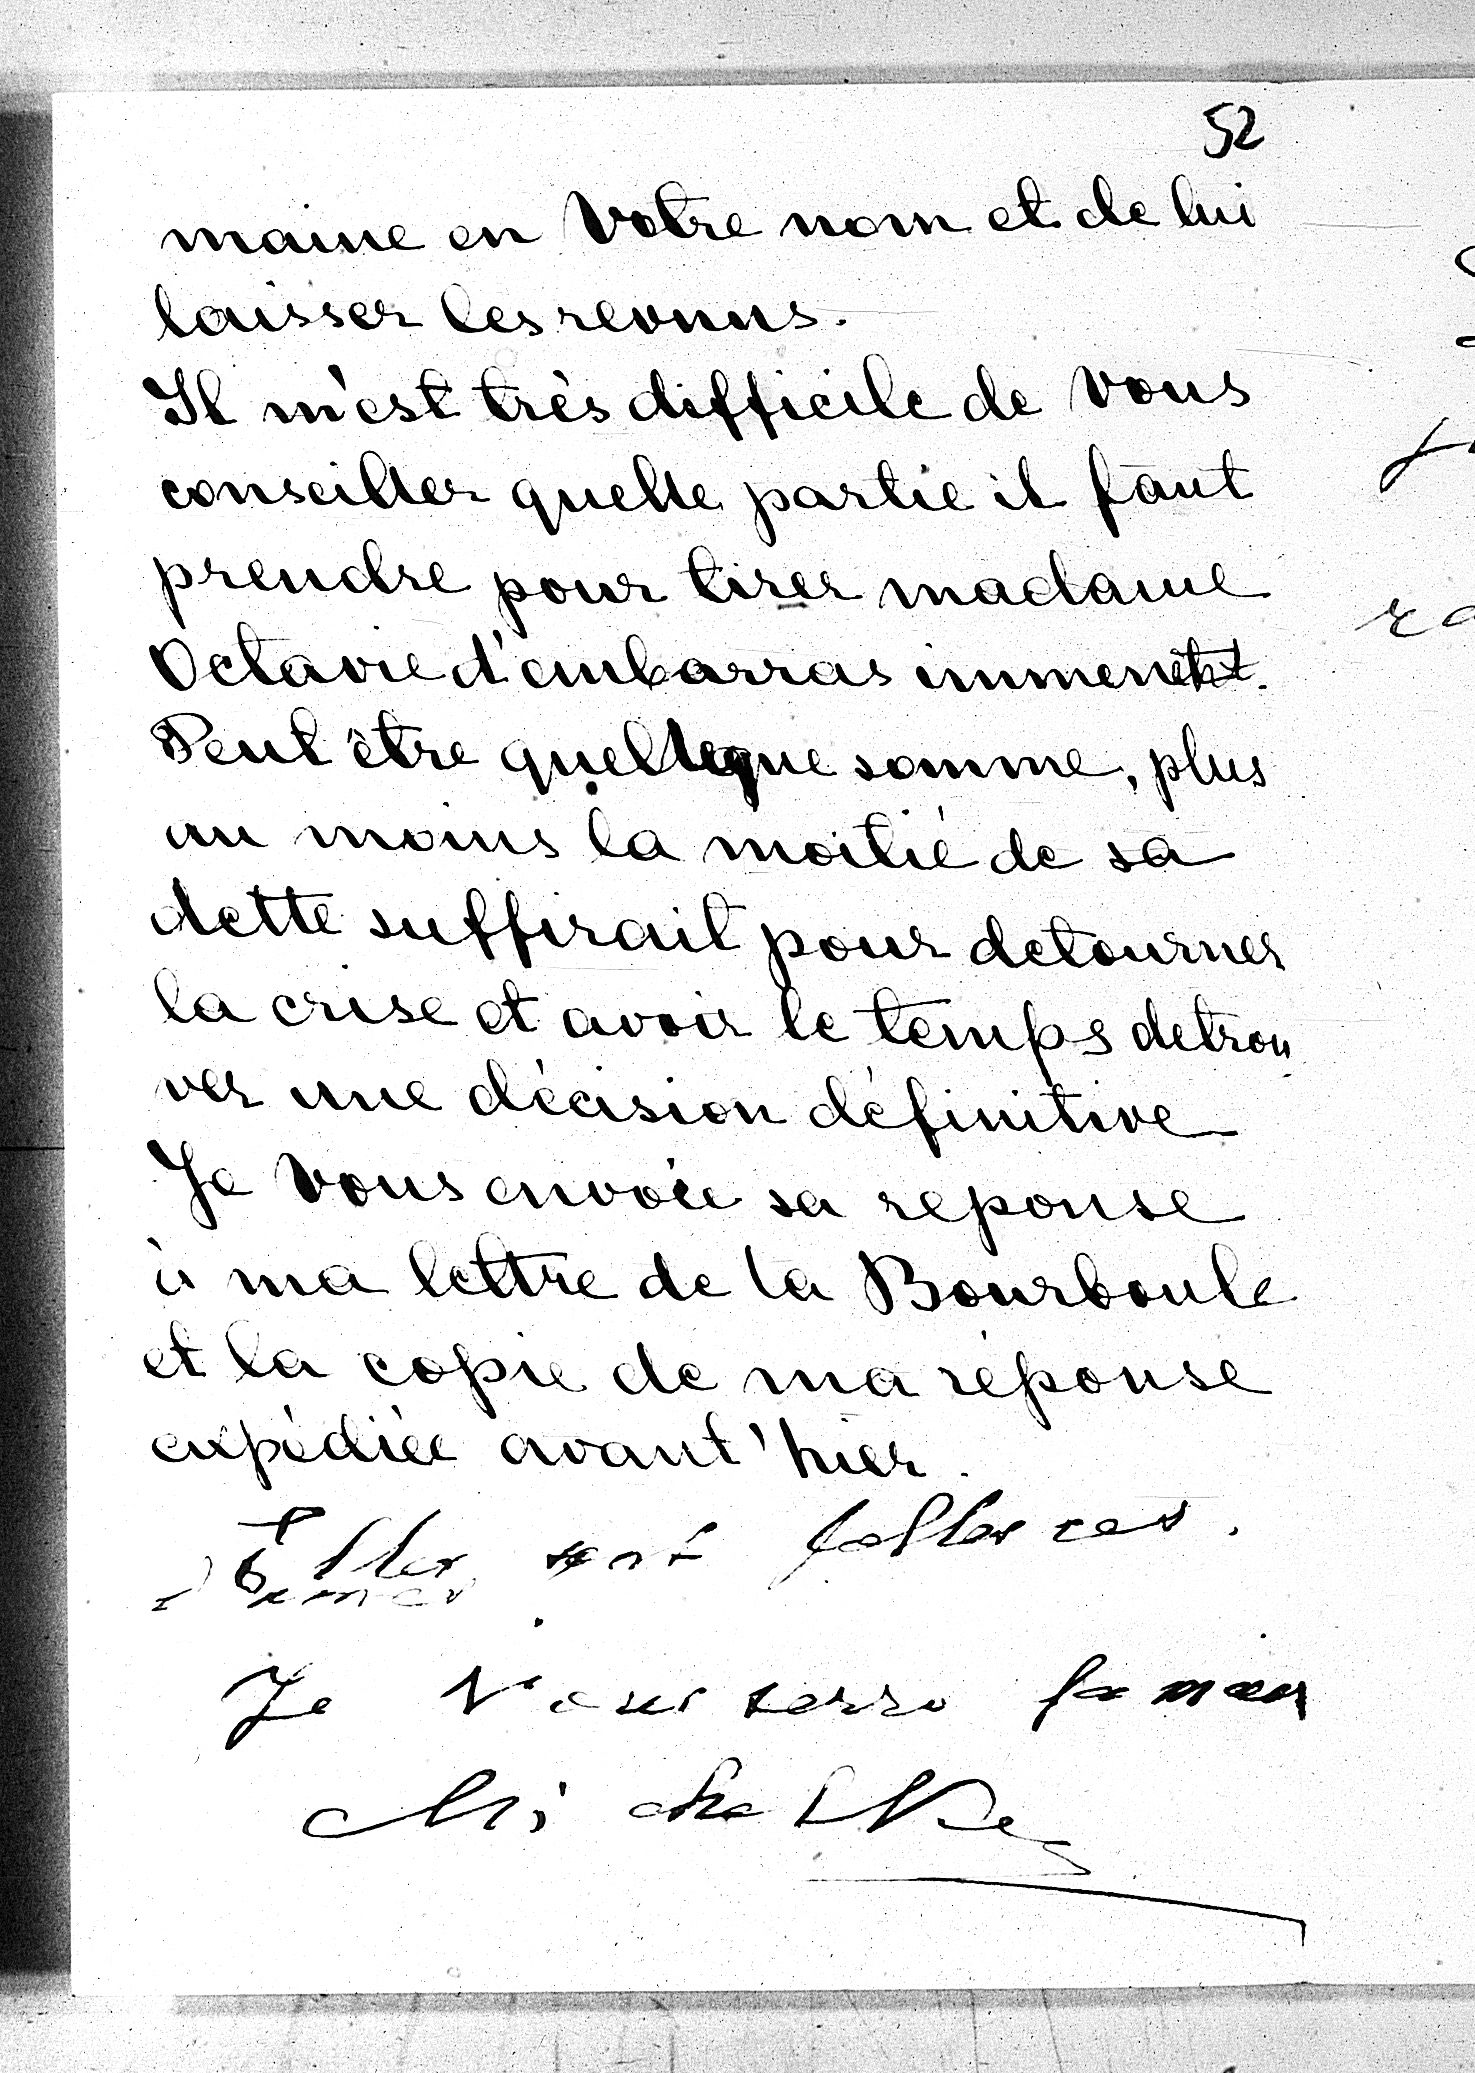 52
maine en Votre nom et de lui
laisser les revenus.
Il m'est très difficile de Vous
conseiller quelle partie il faut
prendre pour tirer madame
Octavie d'embarras imminent.
Peut être quelque somme, plus
au moins la moitié de sa
dette suffirait pour detourner
la crise et avoir le temps de trou
ver une décision définitive
Je Vous envoie sa reponse
à ma lettre de la Bourboule
et la copie de ma réponse
expédiée avant'hier.
Elles sont folles ces
Je Vous serre la main